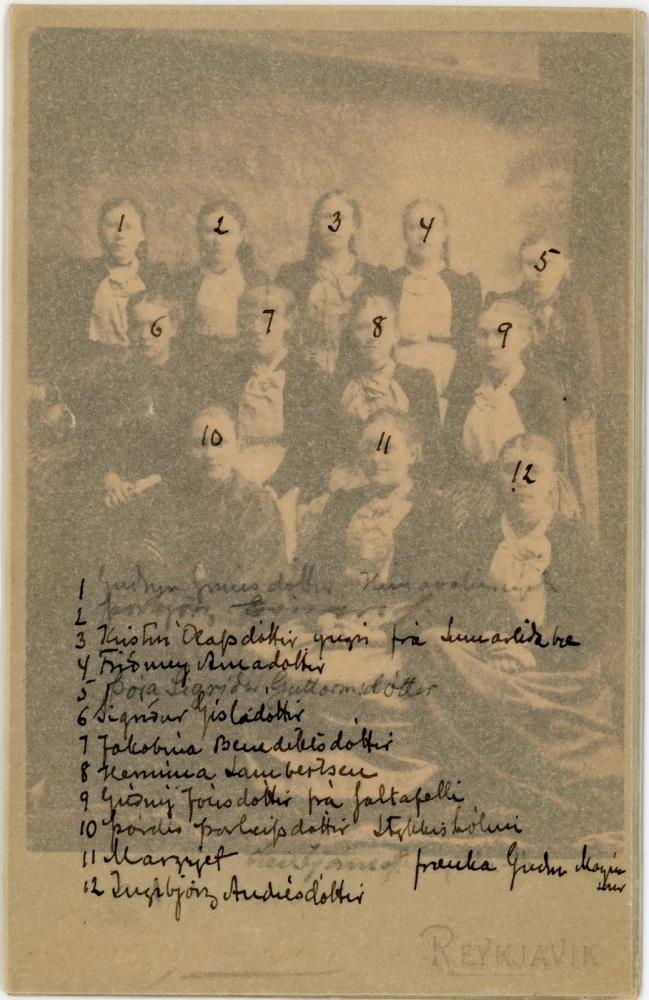 1 2 3 4 5
6 7 8 9
10 11 12
1 Guðrún
2
3 Kristín Olafsdóttir yngri frá Sumarlidabæ
4 Friðmey Arnadóttir
5 Þóra Sigríður Guttormsdóttir
6 Sigríður Gísladóttir
7 Jakobína Benediktsdóttir
8 Hermína Lambertsen
9 Guðný Jónsdóttir frá Galtafelli
10 Þórdís Þorleifsdóttir Stykkishólmi
11 Margrjet frænka
12 Ingibjörg Andrésdóttir
REYKJAVIK